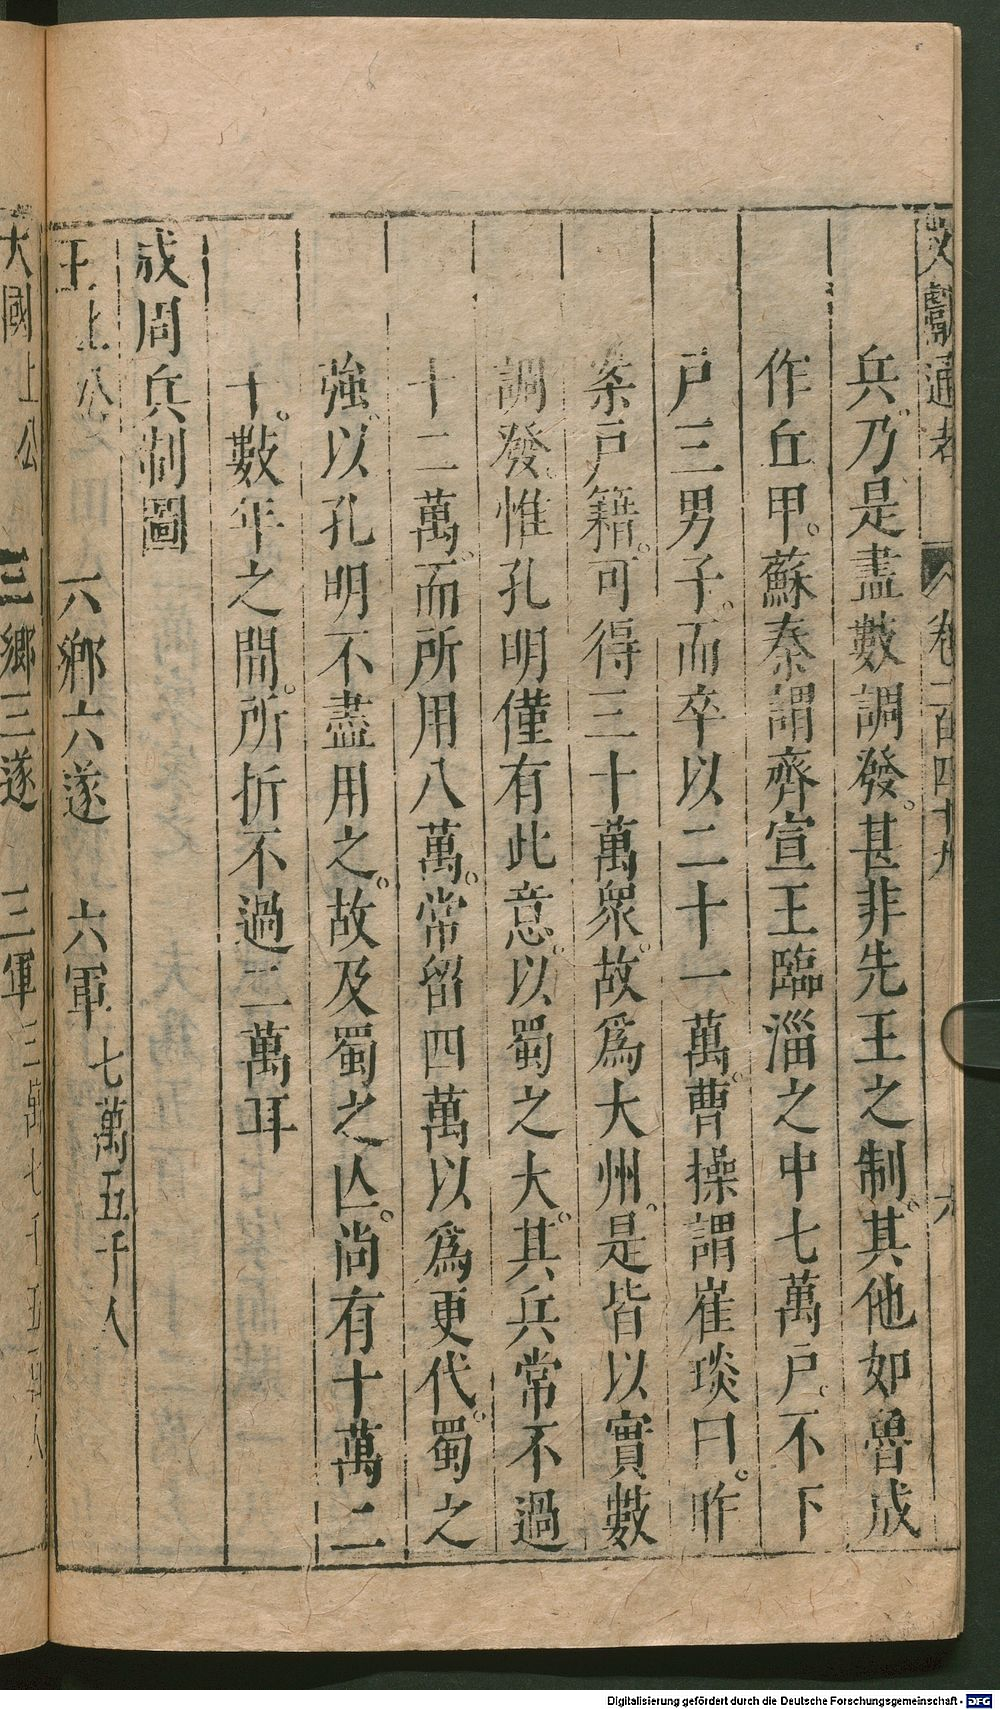 文獻通考 卷一百四十九 六
兵乃是盡數調發。甚非先王之制。其他如魯成
作丘甲。蘇秦謂齊宣王臨淄之中七萬戶。不下
戶三男子。而卒以二十一萬。曹操謂崔琰曰。昨
案戶籍。可得三十萬衆。故爲大州。是皆以實數
調發。惟孔明僅有此意。以蜀之大。其兵常不過
十二萬。而所用八萬。常留四萬以爲更代。蜀之
強。以孔明不盡用之。故及蜀之亾。尚有十萬二
十。數年之間。所折不過二萬耳
成周兵制圖
王 上公 六鄉六遂 六軍 七萬五千人
大國上公 三鄉三遂 三軍 三萬七千五百人
Digitalisierung gefördert durch die Deutsche Forschungsgemeinschaft - DFG